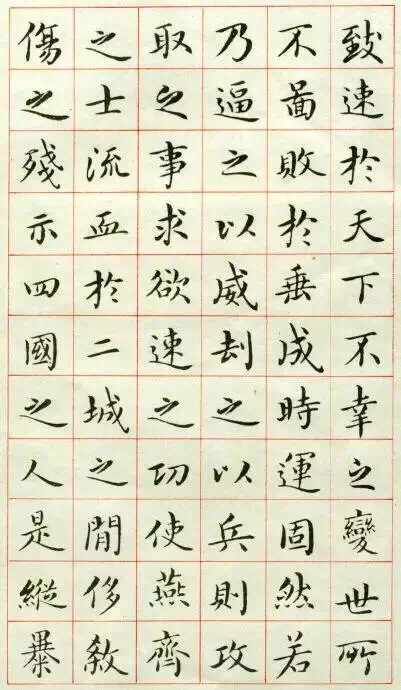 致速於天下不幸之變世所
不啚敗於垂成時運固然若
乃逼之以威刦之以兵則攻
取之事求欲速之功使燕齊
之士流血於二城之閒侈殺
傷之殘示四國之人是縱暴